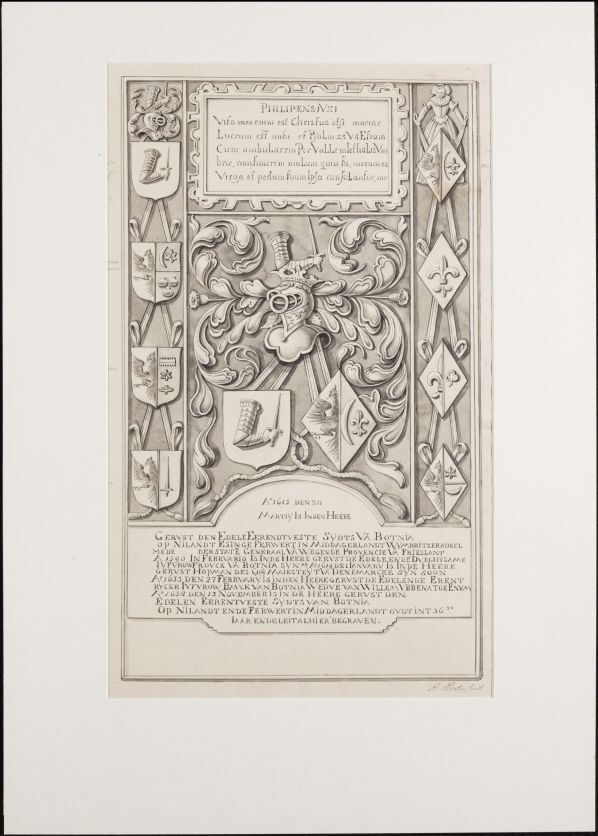 PHILIPENSIUS 1
Vita mea enim est Christus etsi moriar
Lucrum est mihi et Psalm 23 V4 Etiam
Cum ambularem Per Vallem lethalis Vm
brae, non timerem malum quia tu mecum es
Virga et pedum tuum Ipsa consolantur, me
Aº 1615 DEN 20
MARTIJ IS INDEN HEERE
GERUST DEN EDELE EERENDTVESTE SYDTS VĀ BOTNIA
OP NILANDT ESINGE FERWERT IN MIDDAGERLANDT WYMBRITZERADEEL
MEDE DER STATE GENERAAL VĀ WEGENDE PROVENCIE VĀ FRIESLANT
Aº 1590 IN FEBRUARIO IS IN DE HEERE GERUST DE EDELE ENDE DUECHTSAME
IVFVROW FROUCK VĀ BOTNIA SYN JANUARY IS IN DE HEERE
GERUST HOPMAN DES COÑ. MAIESTEYT VĀ DENEMARCKE SYN SOON
Aº 1633 DEN 27 FEBRUARY IS IN DEN HEERE GERUST DE EDEL ENDE ERENT
RYCKE IVFVROW BAUCK VAN BOTNIA WEDUE VAN WILLEM VBBENA TOE
Aº 1638 DEN 15 NOVEMBER IS IN DE HEERE GERUST DEN
EDELEN EERENTVESTE SYDTS VAN BOTNIA
OP NILANDT ENDE FERWERT IN MIDDAGERLANDT OUDT INT 56 STE
IAAR ENDE LEIT ALHIER BEGRAVEN.